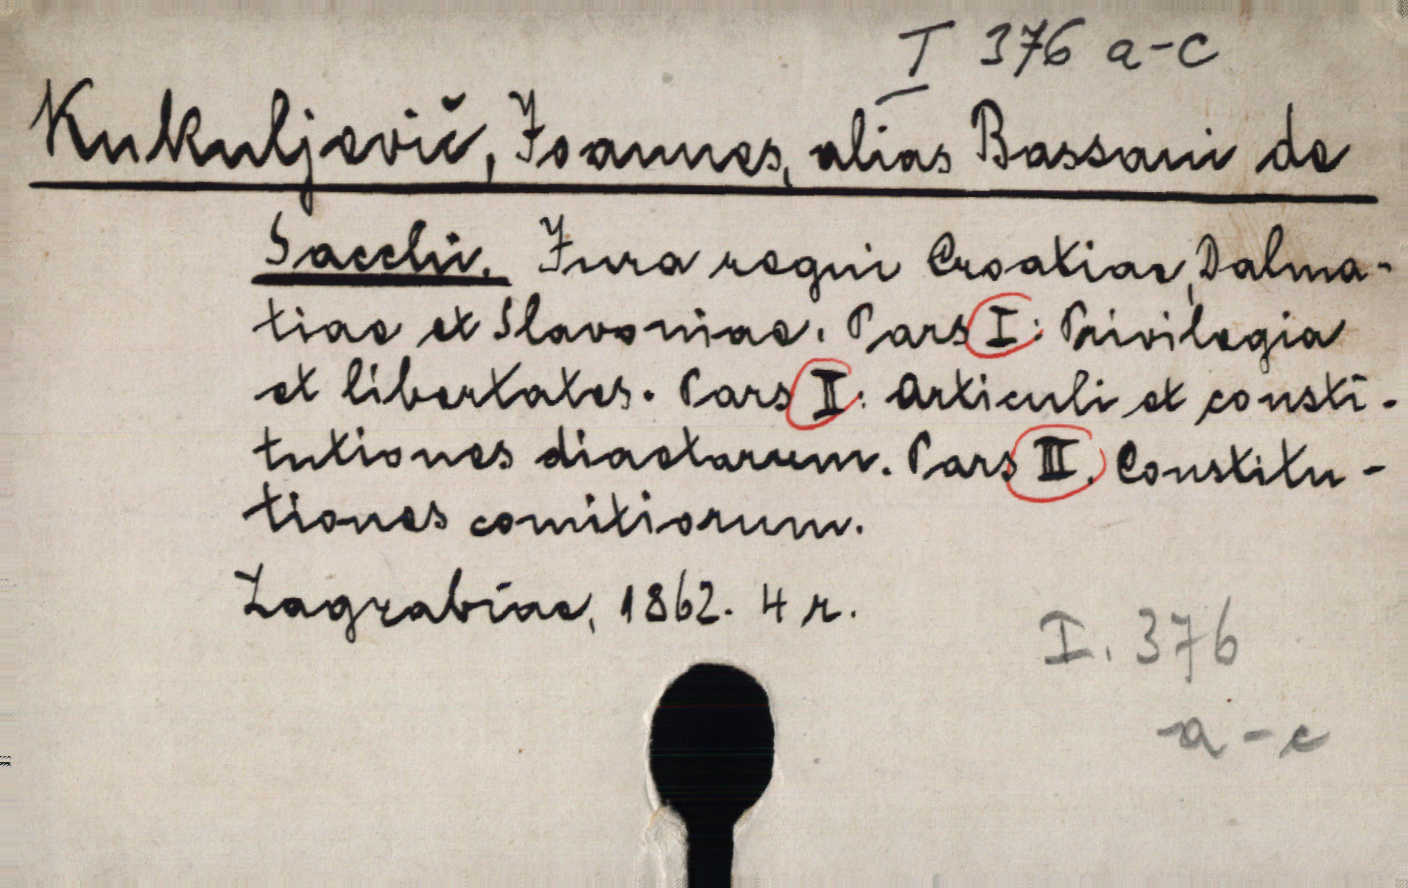 I 376 a-c
Kukuljevič, Joannes, alias Bassani de
Sacchi. Jura regni Croatiae, Dalma-
tiae et Slavoniae. Pars I: Privilegia
et libertates. Pars II: Articuli et consti-
tutiones diaetarum. Pars III. Constitu-
tiones comitiorum.
Zagrabiae, 1862. 4 r.
I. 376
a-c